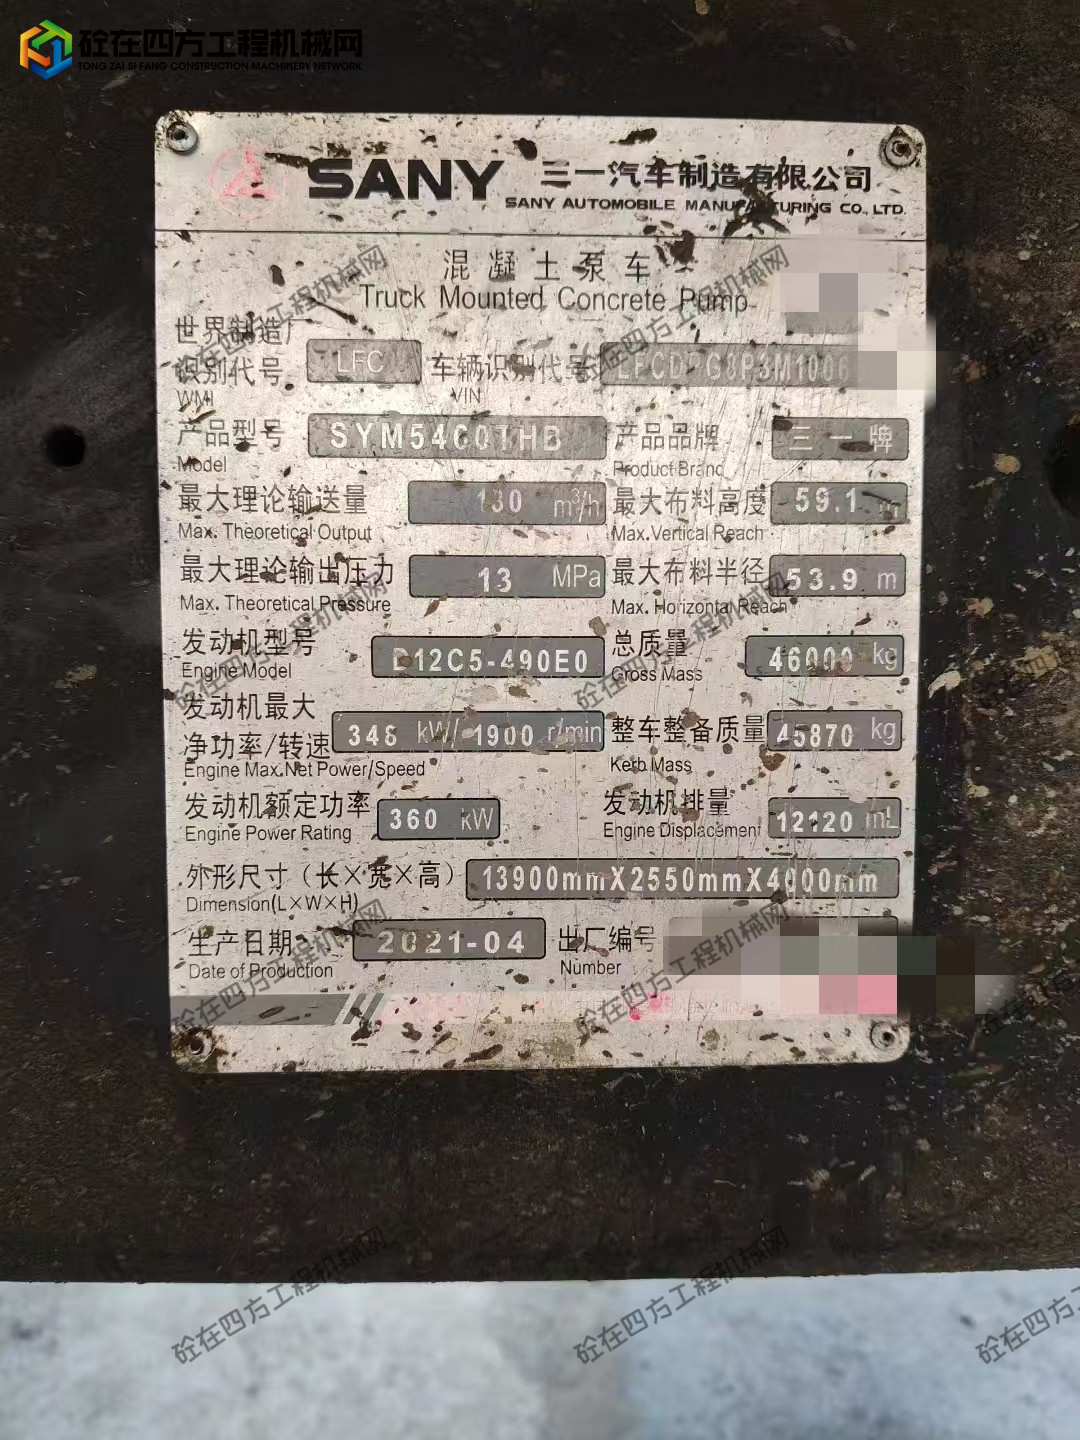 砼在四方工程机械网
TONG ZAI SI FANG CONSTRUCTION MACHINERY NETWORK
SANY 三一汽车制造有限公司
SANY AUTOMOBILE MANUFACTURING CO., LTD.
混凝土泵车
Truck Mounted Concrete Pump
世界制造厂
识别代号 LFC 车辆识别代号
WMI VIN
产品型号 SYM5460THB 产品品牌 三一牌
Model Product Brand
最大理论输送量 180 m³/h 最大布料高度 59.1 m
Max. Theoretical Output Max. Vertical Reach
最大理论输出压力 13 MPa 最大布料半径 53.9 m
Max. Theoretical Pressure Max. Horizontal Reach
发动机型号 D12C5-490E0 总质量 46000 kg
Engine Model Gross Mass
发动机最大
净功率/转速 348 kW/ 1900 r/min 整车整备质量 45870 kg
Engine Max. Net Power/Speed Kerb Mass
发动机额定功率 360 kW 发动机排量 mL
Engine Power Rating Engine Displacement
外形尺寸（长×宽×高） 13900mmX2550mmX4000mm
Dimension(L×W×H)
生产日期 2021-04 出厂编号
Date of Production Number
砼在四方工程机械网
砼在四方工程机械网
砼在四方工程机械网
砼在四方工程机械网
砼在四方工程机械网
砼在四方工程机械网
砼在四方工程机械网
砼在四方工程机械网